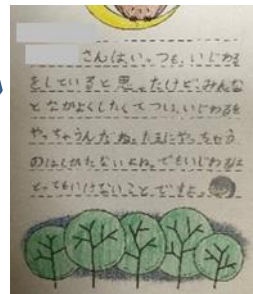 さんは、いつも、いじわる
をしていると思ったけど、みんな
となかよくしたくてつい、いじわるを
やっちゃうんだね。たまにやっちゃう
のはしかたないよね。でもいじわるは
とってもいけないことですよ。